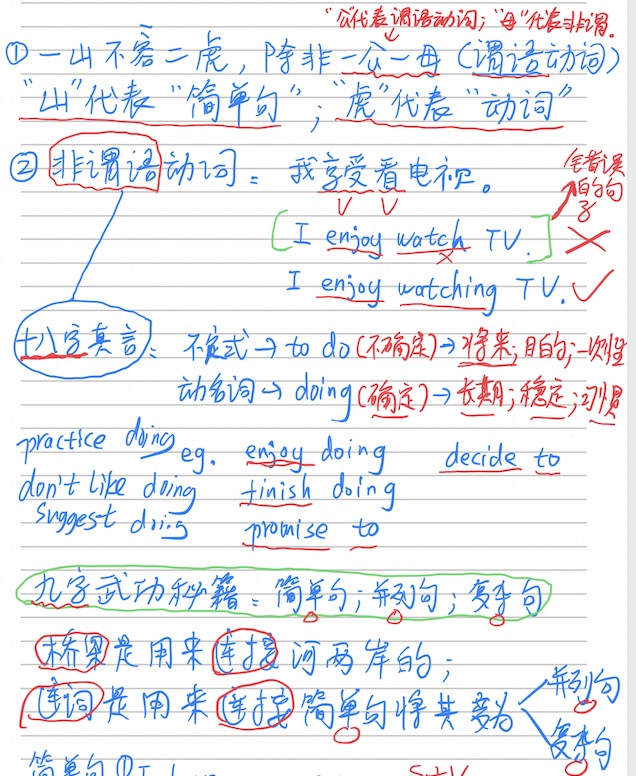 “公”代表谓语动词；“母”代表非谓.
① 一山不容二虎，除非一公一母（谓语动词）
“山”代表“简单句”；“虎”代表“动词”
② 非谓语动词：我享受看电视。
[I enjoy watch TV.] ×
含错误的句子
I enjoy watching TV. ✓
十八字真言：不定式→to do(不确定)→将来;目的;一次性
动名词→doing(确定)→长期;稳定;习惯
practice doing eg. enjoy doing decide to
don't like doing finish doing
suggest doing promise to
九字武功秘籍：简单句;并列句;复杂句
桥梁是用来连接河两岸的;
连词是用来连接简单句将其变为
并列句
复杂句
简单句①I
S+V